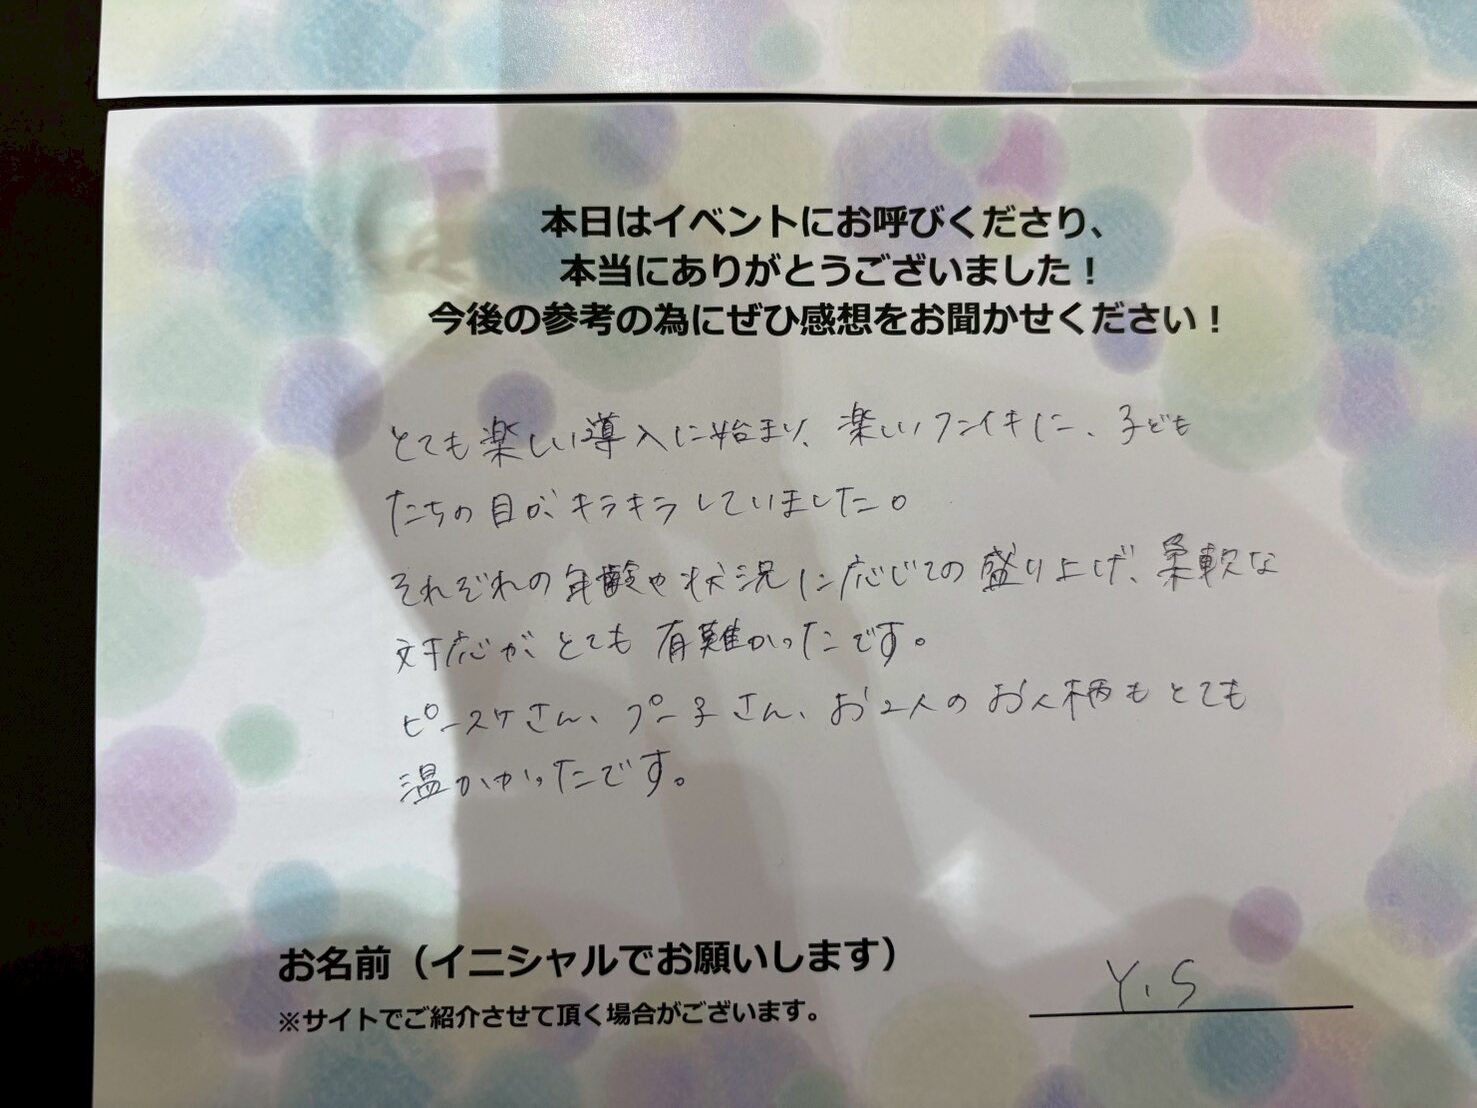 本日はイベントにお呼びくださり、
本当にありがとうございました！
今後の参考の為にぜひ感想をお聞かせください！
とても楽しい導入に始まり、楽しいフンイキに、子ども
たちの目が、キラキラしていました。
それぞれの年齢や状況に応じての盛り上げ、柔軟な
対応が、とても有難かったです。
ピースケさん、プー子さん、お2人のお人柄もとても
温かかったです。
お名前（イニシャルでお願いします）
Y.S
※サイトでご紹介させて頂く場合がございます。